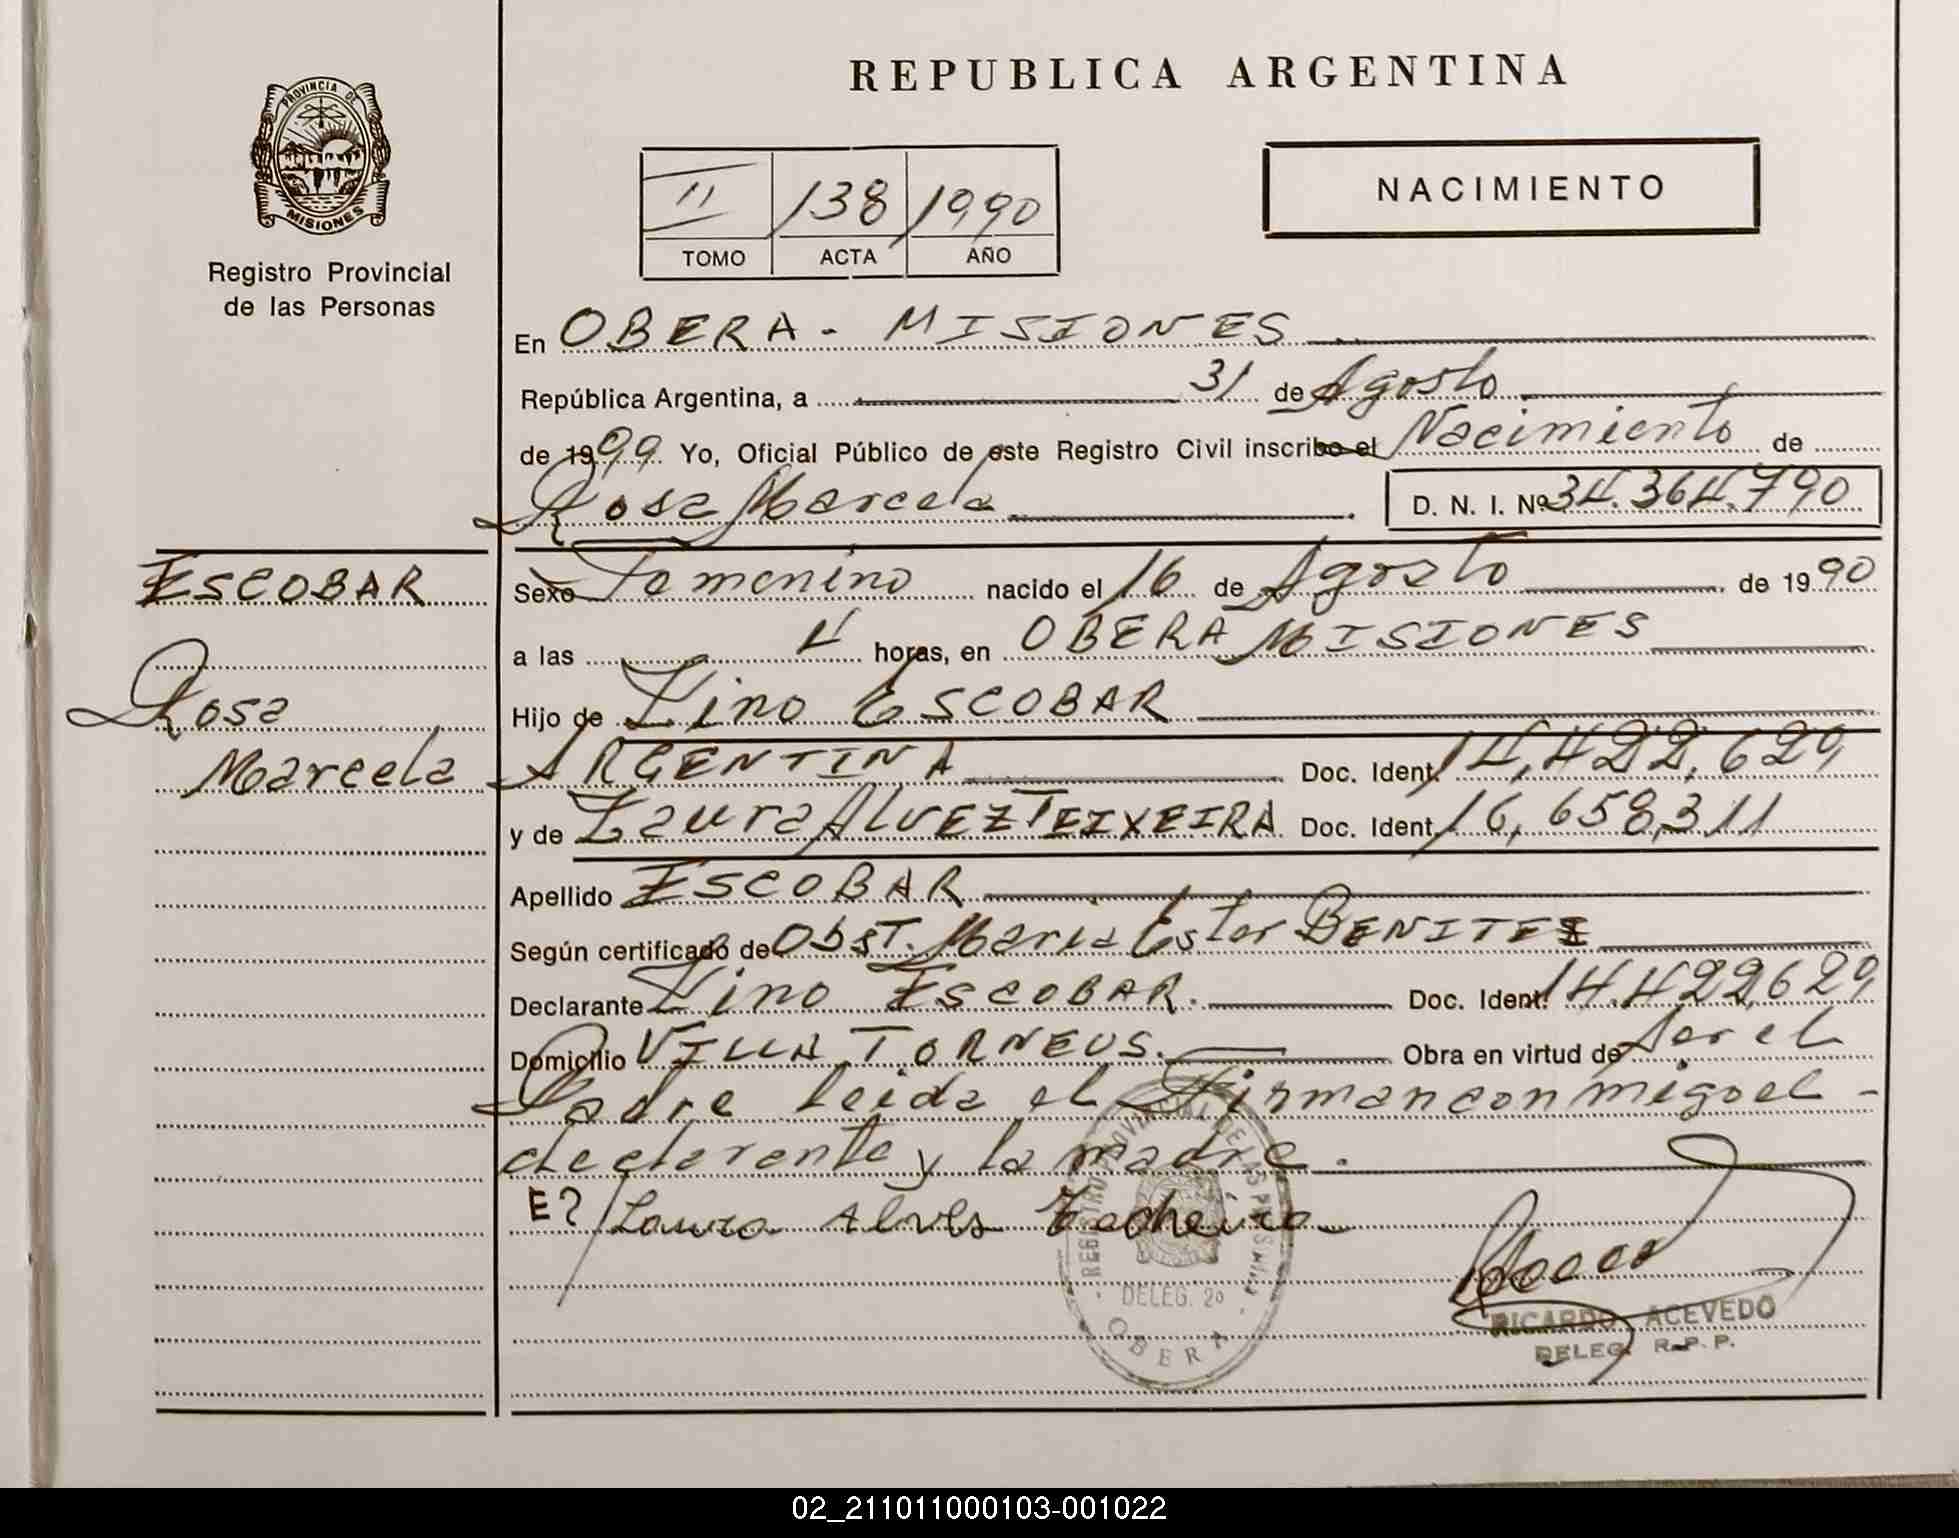 REPUBLICA ARGENTINA
PROVINCIA DE
MISIONES
Registro Provincial
de las Personas
II 138 1990
TOMO ACTA AÑO
NACIMIENTO
En OBERA - MISIONES
República Argentina, a 31 de Agosto
de 1999 Yo, Oficial Público de este Registro Civil inscribo el Nacimiento de
Rosa Marcela D. N. I. Nº 34.364.790
ESCOBAR
Rosa
Marcela
Sexo Femenino nacido el 16 de Agosto de 1990
a las 4 horas, en OBERA MISIONES
Hijo de Lino ESCOBAR
ARGENTINA Doc. Ident. 14,422,629
y de Laura ALVEZ TEIXEIRA Doc. Ident. 16,658,311
Apellido ESCOBAR
Según certificado de Obst. Maria Ester BENITEZ
Declarante Lino ESCOBAR. Doc. Ident. 14.422,629
Domicilio VILLA TORNEUS. Obra en virtud de ser el
Padre leida el Firman conmigo el
declarante y la madre.
E? Laura Alves
REGISTRO PROVINCIAL DE LAS PERSONAS
DELEG. 20
OBERA
RICARDO ACEVEDO
DELEG. R.P.P.
02_211011000103-001022